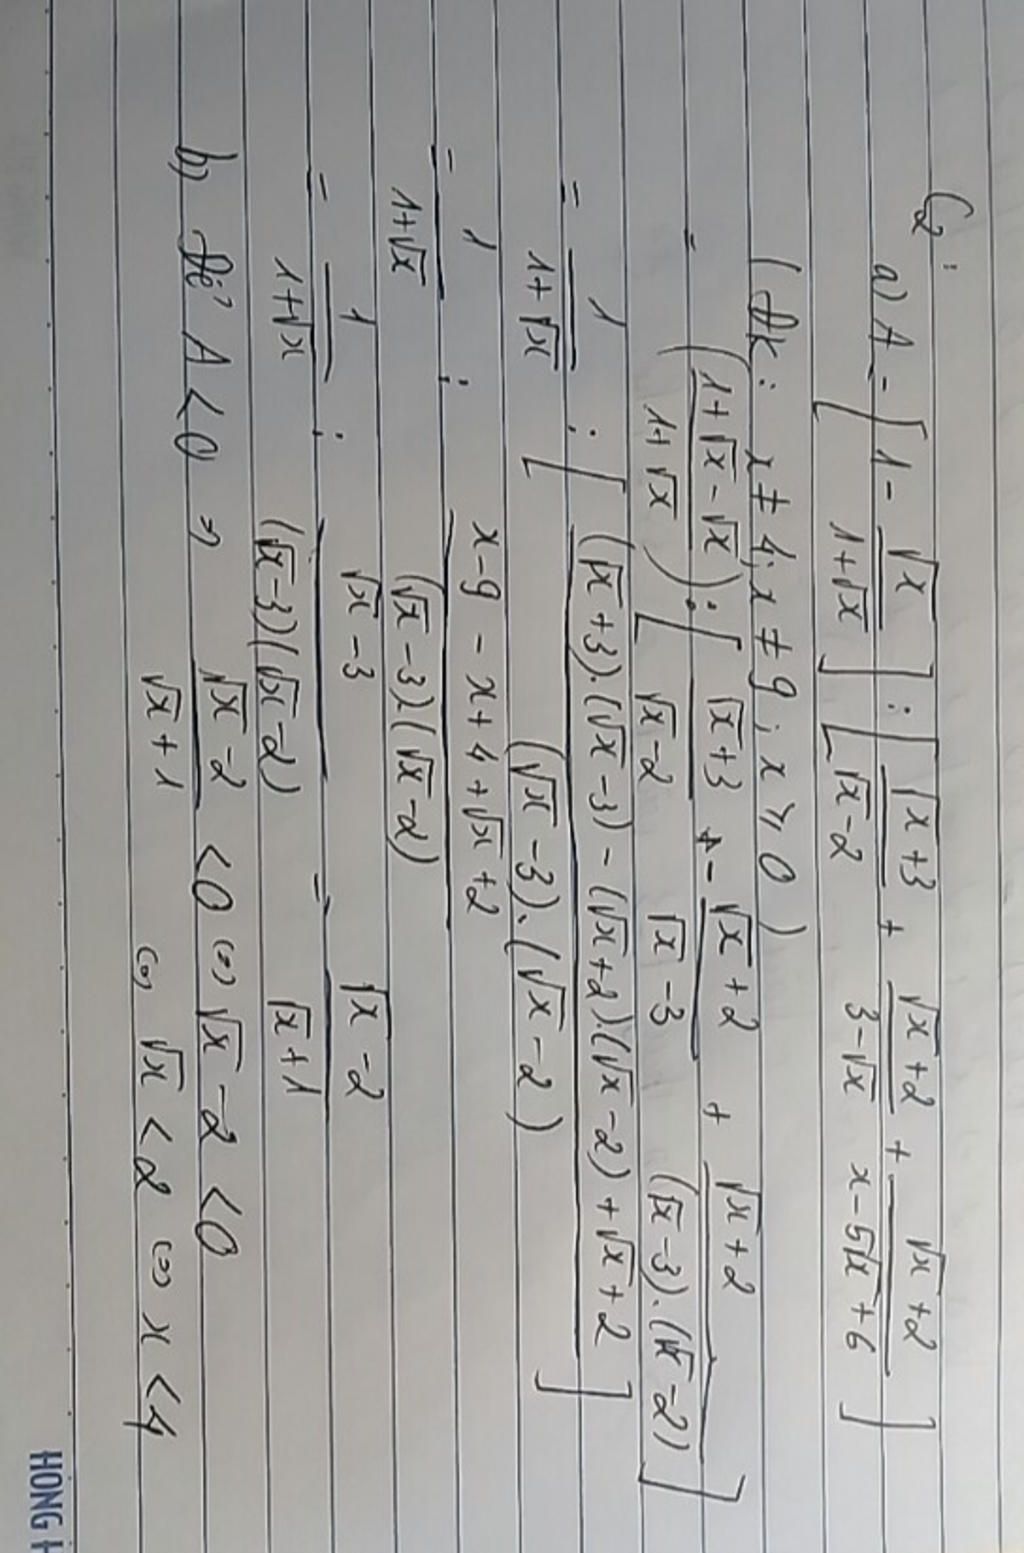 C2:
a) A = [1 - √x/(1+√x)] : [(√x+3)/(√x-2) + (√x+2)/(3-√x) + (√x+2)/(x-5√x+6)]
(ĐK: x ≠ 4; x ≠ 9; x ⩾ 0)
= ((1+√x-√x)/(1+√x)) : [(√x+3)/(√x-2) - (√x+2)/(√x-3) + (√x+2)/((√x-3).(√x-2))]
= 1/(1+√x) : [((√x+3).(√x-3) - (√x+2).(√x-2) + √x+2)/((√x-3).(√x-2))]
= 1/(1+√x) : (x-9 - x+4+√x+2)/((√x-3)(√x-2))
= 1/(1+√x) : (√x-3)/((√x-3)(√x-2)) = (√x-2)/(√x+1)
b) Để A < 0 ⇒ (√x-2)/(√x+1) < 0 ⇔ √x - 2 < 0
⇔ √x < 2 ⇔ x < 4
HONG H